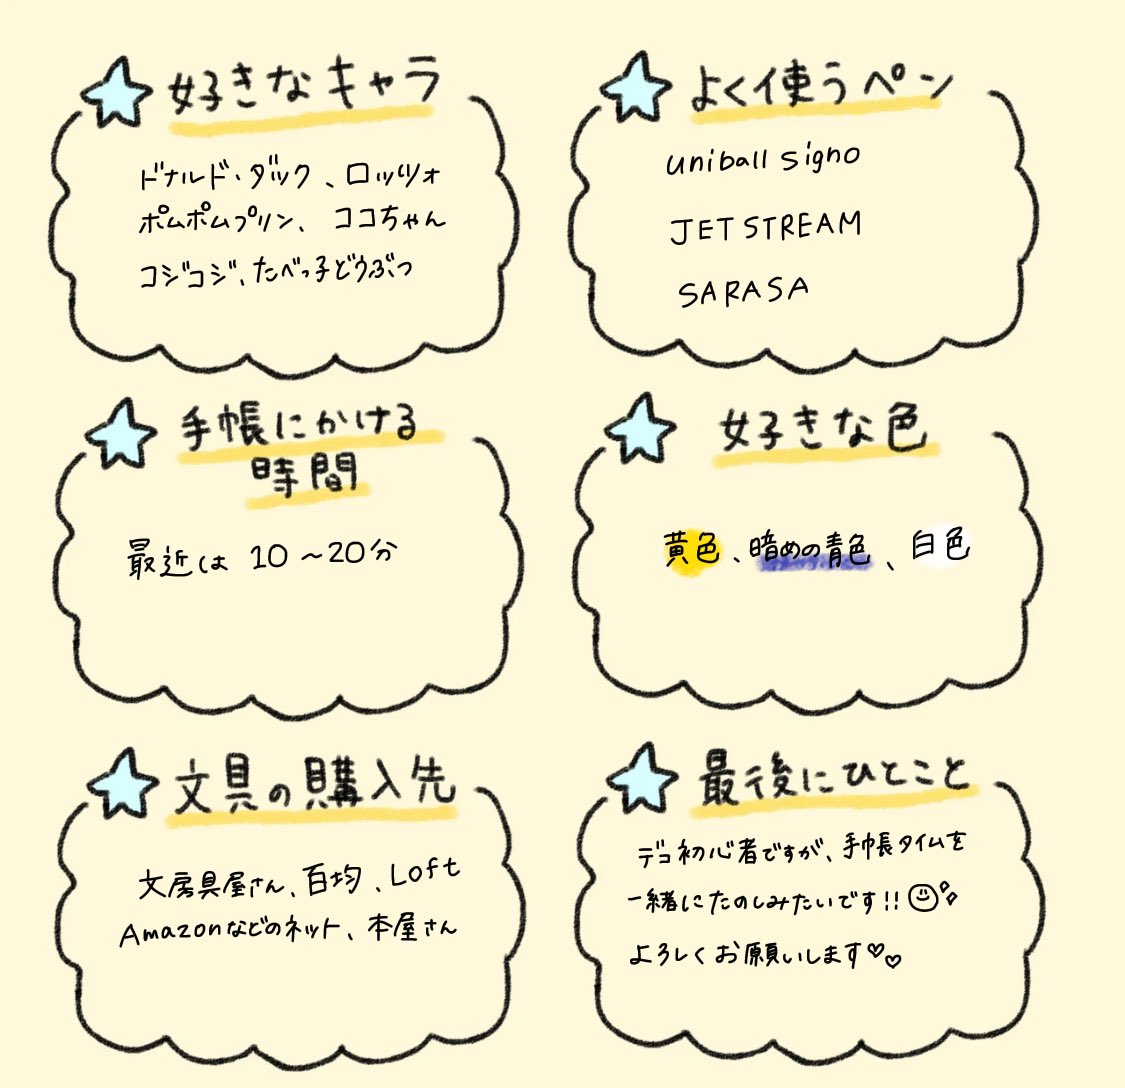 好きなキャラ
ドナルド・ダック、ロッツォ
ポムポムプリン、ココちゃん
コジコジ、たべっ子どうぶつ
よく使うペン
uniball signo
JETSTREAM
SARASA
手帳にかける
時間
最近は 10～20分
好きな色
黄色、暗めの青色、白色
文具の購入先
文房具屋さん、百均、Loft
Amazonなどのネット、本屋さん
最後にひとこと
デコ初心者ですが、手帳タイムを
一緒にたのしみたいです!!
よろしくお願いします♡♡